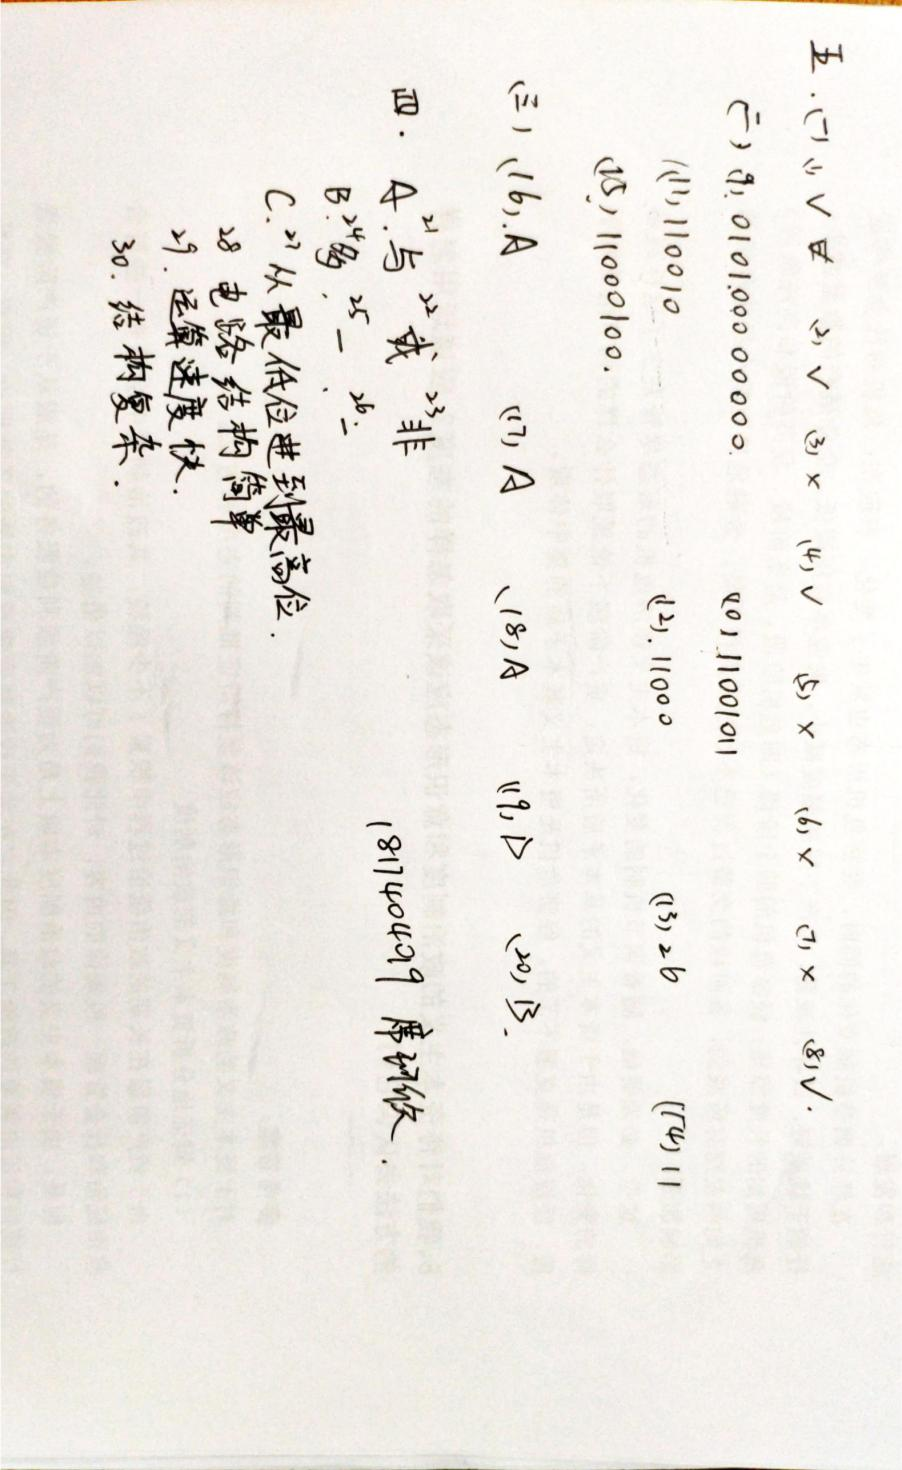 五.(一)(1)√ (2)√ (3)× (4)√ (5)× (6)× (7)× (8)√.
(二)(9)010100000000. (10)111001011
(11)110010 (12).11000 (13)26 (14)11
(15)11000100.
(三)(16).A (17)A (18)A (19)D (20)B.
四. A.21与 22或 23非
B.24多. 25一. 26一
C.27从最低位进到最高位.
28 电路结构简单
29.运算速度快.
30.结构复杂.
181740429